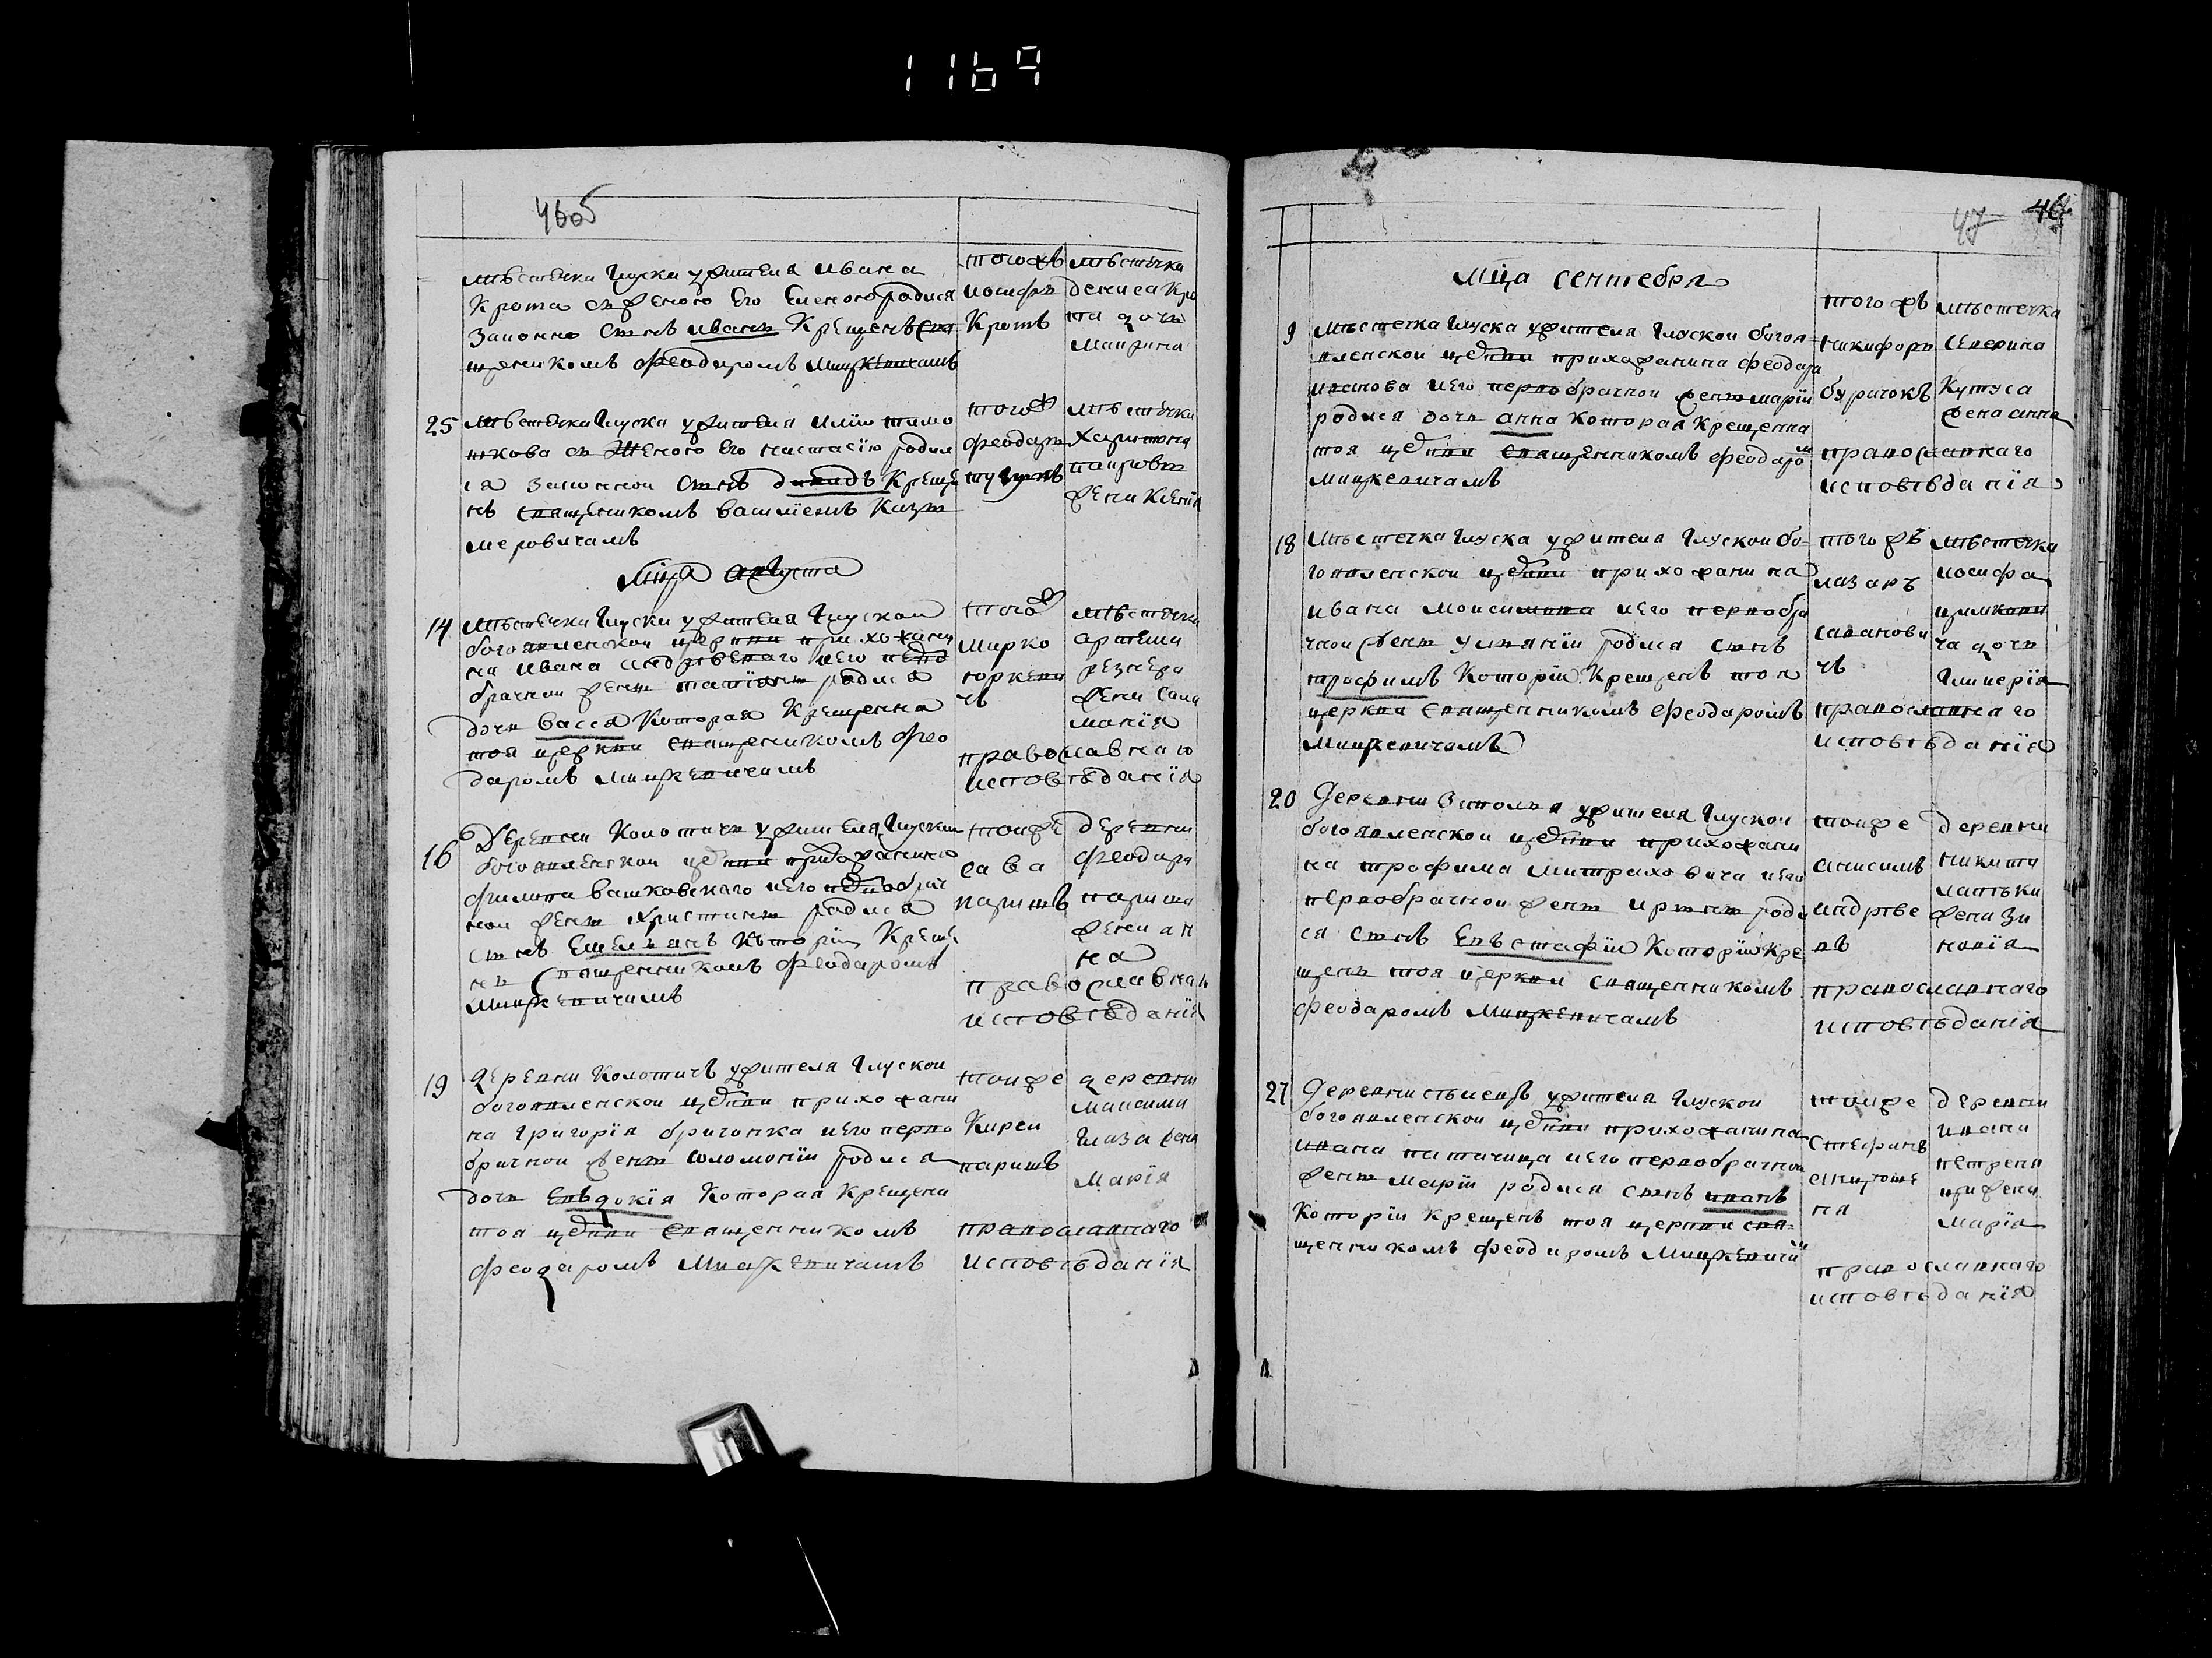 1169
46об
мѣстечка Глуска ужителя Ивана
Крота съ женою Его Еленою родися
Законно сынъ иванъ Крещенъ свя
щеникомъ Феодаромъ Мицкевичамъ
тогожъ
иосифъ
Кротъ
мѣстечка
дениса Кро
та дочь
Маврина
25
мѣстечка Глуска ужителя
съ Женою Его настасїю родил
ся законной сынъ давидъ Креще
нъ священикомъ василиемъ Кази
меровичамъ
тогож
феодаръ
мѣстечка
Харитона
жена Ксенїя
Мца августа
14
мѣстечка Глуска ужителя Глуской
богоявленской церкви прихожани
на Ивана его перво
брачной жены татїяны родися
дочь васса Которая Крещенна
тоя церкви священикомъ Фео
даромъ Мицкевичемъ
тогож
Марко
юркеви
чъ
мѣстечка
артема
жена Сала
манїя
православнаго
исповѣданїя
16
Деревни Колотичъ ужителя Глуской
богоявленской церкви прихожанина
филипа вашковскаго иего первобрач
ной жены христины родися
сынъ Емельянъ Которїй Креще
нъ священникомъ Феодаромъ
Мицкевичамъ
тоиже
сава
паришъ
деревни
феодара
париша
жена ан
на
православнаго
исповѣданїя
19
деревни Колотичъ ужителя Глуской
богоявленской церкви прихожани
на григорїя бричонка иего перво
брачной жены соломонїи родися
дочь Евдокїя Которая Крещена
тоя церкви священникомъ
Феодаромъ Мицкевичамъ
тоиже
Кирей
паришъ
деревни
Максима
Глаза жена
Марїя
православнаго
исповѣданїя
47 46
Мца сентебря
9
Мѣстечка Глуска ужителя Глуской богоя
вленской церкви прихожанина феодара
иего первобрачной жены марїи
родися дочь анна Которая Крещенна
тоя церкви священникомъ Феодаром
Мицкевичамъ
того жъ
никифоръ
бурачокъ
мѣстечка
Северина
Кутуса
жена анна
православнаго
исповѣданїя
18
Мѣстечка Глуска ужителя Глуской бо-
гоявленской церкви прихожанина
ивана иего первобра
чной жены ульянїи родися сынъ
трофимъ Которїй Крещенъ тоя
церкви священникомъ Феодаромъ
Мицкевичамъ
того жъ
лазаръ
савanови
чъ
мѣстечка
иосифа
ча дочь
Гликерїя
православнаго
исповѣданїя
20
Деревни ужителя Глуской
богоявленской церкви прихожани
на трофима митраховича иего
первобрачной жены ирыны роди
ся сынъ Евъстафїй Которїй Кре
щенъ тоя церкви священникомъ
феодаромъ Мицкевичамъ
тоиже
анисимъ
андрѣе
въ
деревни
никиты
жена Зи
новїя
православнаго
исповѣданїя
27
Деревни ужителя Глуской
богоявленской церкви прихожанина
ивана иего первобрачной
жены марїи родися сынъ иванъ
Которїи Крещенъ тоя церкви свя-
щенникомъ феодаромъ Мицкевичам
тоиже
Стефанъ
деревни
ивана
жена
марїя
православнаго
исповѣданїя